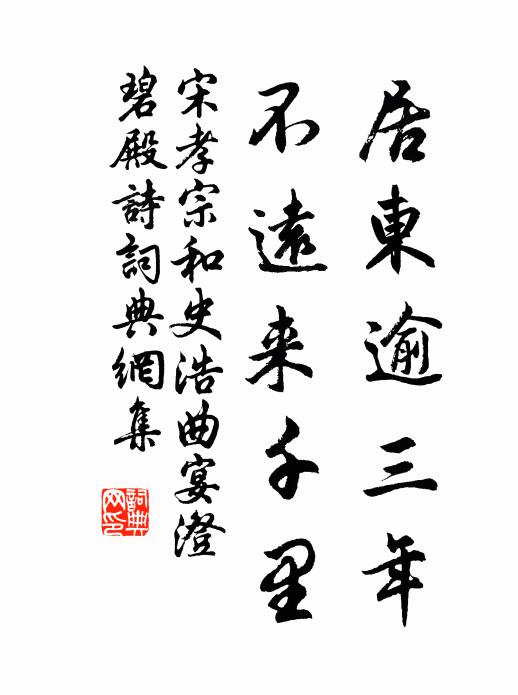 居東逾三年
不遠来千里
宋孝宗和史浩曲宴澄
碧殿詩詞典網集
詞典
网印